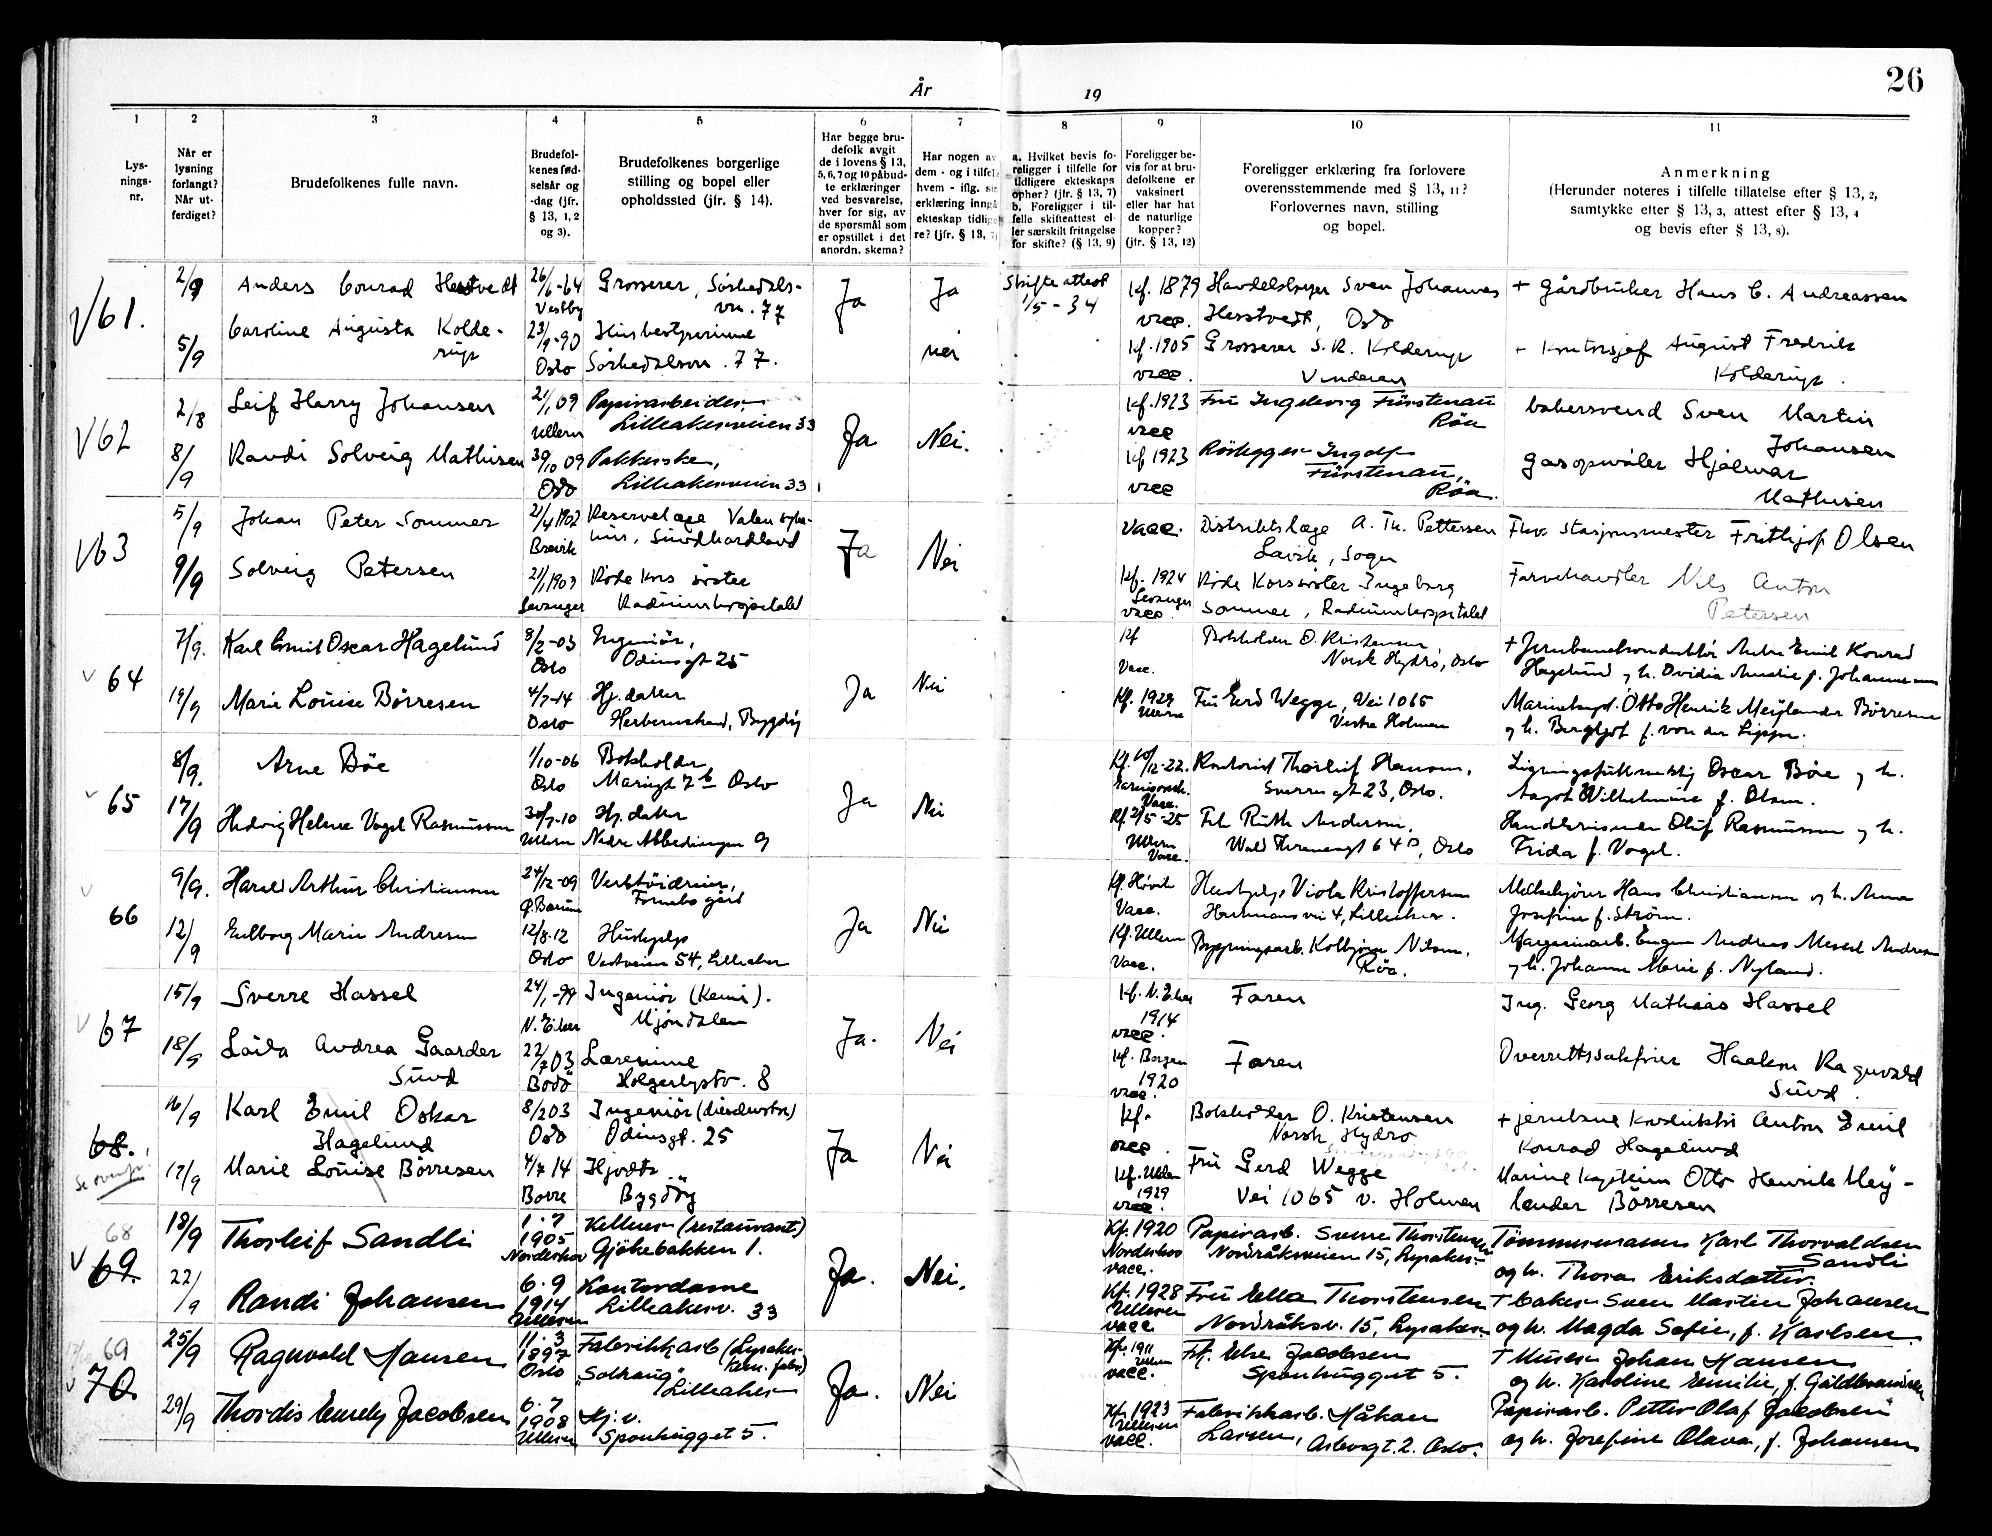 26
År 19
1 2 3 4 5 6 7 8 9 10 11
Lysnings-nr.
Når er lysning forlangt? Når utferdiget?
Brudefolkenes fulle navn.
Brudefolkenes fødselsår og -dag (jfr. § 13, 1, 2 og 3).
Brudefolkenes borgerlige stilling og bopel eller opholdssted (jfr. § 14).
Har begge brudefolk avgit de i lovens § 13, 5, 6, 7 og 10 påbudte erklæringer ved besvarelse, hver for sig, av de spørsmål som er opstillet i det anordn. skema?
Har nogen av dem - og i tilfelle hvem - iflg. sin erklæring inngå ekteskap tidligere? (jfr. § 13, 7)
a. Hvilket bevis foreligger i tilfelle for tidligere ekteskaps ophør? (jfr. § 13, 7) b. Foreligger i tilfelle skifteattest eller særskilt fritagelse for skifte? (§ 13, 9)
Foreligger bevis for at brudefolkene er vaksinert eller har hat de naturlige kopper? (jfr. § 13, 12)
Foreligger erklæring fra forlovere overensstemmende med § 13, 11? Forlovernes navn, stilling og bopel.
Anmerkning (Herunder noteres i tilfelle tillatelse efter § 13, 2, samtykke efter § 13, 3, attest efter § 13, 4 og bevis efter § 13, 8).
V61. 2/9 Anders Conrad Hestvedt 26/6-64 Vestby Grosserer, Sørkedalsvn. 77 Ja Ja Skifteattest 1/5-34 kf. 1879 vacc. Handelsborger Sven Johannes Hestvedt, Oslo + gårdbruker Hans C. Andreassen
5/9 Caroline Augusta Kolderup 23/9-90 Oslo Husbestyrerinne Sørkedalsvn. 77. nei kf. 1905 vacc. Grosserer S. R. Kolderup Vinderen + Kontorsjef August Fredrik Kolderup.
V62 2/8 Leif Harry Johansen 21/1 09 Ullern Papirarbeider, Lilleakerveien 33 Ja Nei. kf. 1923 vacc Fru Ingeborg Fürstenau Røa bakersvend Sven Martin Johansen
8/9 Randi Solveig Mathisen 30/10 09 Oslo Pakkerske, Lilleakerveien 33 kf 1923 vacc Rørlegger Ingolf Fürstenau, Røa. Gasopmåler Hjalmar Mathisen
V63 5/9 Johan Peter Sommer 21/4 1902 Brevik Reservelæge Valen sykehus, Sundhordland Ja Nei Vacc. Distriktslæge A. Th. Pettersen Lavik, Sogn Fhv. stasjonsmester Frithjof Olsen
9/9 Solveig Petersen 21/1 1903 Levanger Røde Kors søster Radiumhospitalet kf. 1924 Levanger vacc. Røde Korssøster Ingeborg Sommer, Radiumhospitalet Farvehandler Nils Anton Petersen
V 64 7/9. Karl Emil Oscar Hagelund 8/2-03 Oslo Ingeniør, Odinsgt 25 Ja Nei kf Vacc. Bokholder O. Kristensen Norsk Hydro, Oslo + Jernbanekonduktør Emil Konrad Hagelund og h. Ovidia Amalie f. Johannessen
19/9 Marie Louise Børresen 4/7-14 Oslo Hj. datter Herbernstrand, Bygdøy Kf. 1929 Ullern Fru Gerd Wegge, Vei 1065 Vestre Holmen Marinekapt. Otto Henrik Meijlænder Børresen og h. Bergljot f. von der Lippe.
V 65 8/9. Arne Bøe 1/10-06 Oslo Bokholder Maringt 7b Oslo Ja Nei Kf. 10/12-22. Garnisonsk. Vacc. Kontorist Thorleif Hansen, Sverres gt 23, Oslo. Ligningsfullmektig Oscar Bøe og h. Aagot Wilhelmine f. Olsen.
17/9 Hedvig Helene Vogel Rasmussen 30/7-10 Ullern Hj. datter Nedre Abbediengen 9 Kf 2/5-25 Ullern Vacc. Frk Ruth Andersen, Wald. Thranesgt 64 D, Oslo Handlerismann Oluf Rasmussen og h. Frida f. Vogel.
V 66 9/9. Harald Arthur Christiansen 24/12-09 Ø. Bærum Verktøidreier, Fornebo gård Ja Nei Kf. Høvik Vacc. Hushjelp Viola Kristoffersen Herrmanns vei 4, Lilleaker. Melkekjører Hans Christiansen og h. Anna Josefine f. Strøm.
12/9 Eulborg Marie Andresen 12/8-12 Oslo Hushjelp Vestveien 54, Lilleaker Kf. Ullern Vacc. Bygningsarb. Kolbjørn Nilsen, Røa. Margarinarb. Eugen Andreas Andresen og h. Johanne Marie f. Nyland.
V 67 15/9 Sverre Hassel 24/1-99 N. Eiker Ingeniør (kemi). Mjøndalen Ja. Nei kf. N. Eiker 1914 vacc. Faren Ing. Georg Mathias Hassel
18/9 Laila Andrea Gaarder Sund 22/7 03 Bodø Lærerinne Holgerlystv. 8 kf. Borgen 1920 vacc. Faren Overrettssakfører Haakon Ragnvald Sund.
68. Se ovenfor! 16/9 Karl Emil Oskar Hagelund 8/2 03 Oslo Ingeniør (dieselmotor) Odinsgt. 25 Ja Nei kf. vacc Bokholder O. Kristensen Norsk Hydro + jernbanekonduktør Anton Emil Konrad Hagelund
17/9 Marie Louise Børresen 4/7 14 Borre Hj. dtr Bygdøy kf. Ullern 1929 vacc. Fru Gerd Wegge Vei 1065 v. Holmen Marinekaptein Otto Henrik Meylænder Børresen
68 V 69. 18/9 Thorleif Sandli 1.7 1905 Norderhov Kellner (restaurant) Gjøkebakken 1. Ja. Nei. Kf. 1920 Norderhov vacc. Papirarb. Sverre Thorstensen Nordråksveien 15, Lysaker. Tømmermann Karl Thorvaldsen Sandli og h. Thora Eriksdatter.
22/9 Randi Johansen 6.9 1914 Ullern Kontordame Lilleakerv. 33 Kf. 1928 Ullern vacc. Fru Ella Thorstensen Nordråksv. 15, Lysaker. + baker Sven Martin Johansen og h. Magda Sofie, f. Karlsen
69 V 70. 25/9 Ragnvald Hansen 11.3 1897 Oslo Fabrikkarb (Lysaker kem. fabr.) "Solhaug" Lilleaker Ja. Nei Kf. 1911 Ullern vacc. Frk. Else Jacobsen Sponhugget 5. + Murer Johan Hansen og h. Karoline Emilie, f. Guldbrandsen
29/9 Thordis Emely Jacobsen 6.7 1908 Ullern Hj. v. Sponhugget 5. Kf. 1923 Ullern vacc. Fabrikkarb. Håkon Larsen, Asbergt. 2. Oslo. Papirarb. Petter Olaf Jacobsen og h. Josefine Olava, f. Johansen